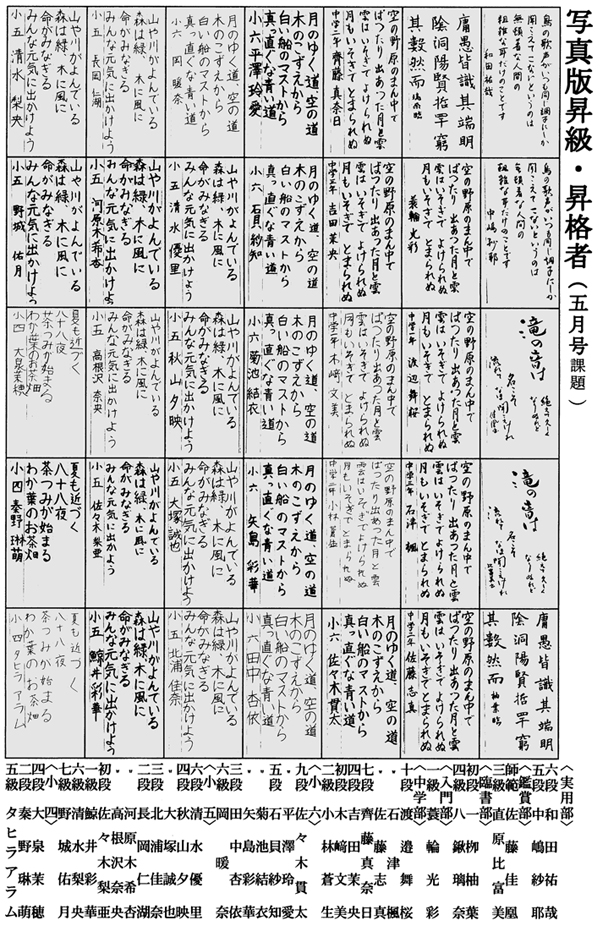 写真版昇級・昇格者(五月号課題)
鳥の歌声がいつも同じ調子にしか
聞こえてこないというのは
無頓着な人間の
粗雑な耳だけのことです
和田祐哉
庸愚皆識其端明
陰洞陽賢哲罕窮
其數然而
空の野原のまん中で
ばったり出あった月と雲
雲はいそぎてよけられぬ
月もいそぎてとまられぬ
中学二年 齊藤真奈日
月のゆく道、空の道
木のこずえから
白い船のマストから
真っ直ぐな青い道
小六 平澤玲愛
月のゆく道、空の道
木のこずえから
白い船のマストから
真っ直ぐな青い道
小六 岡暖奈
山や川がよんでいる
森は緑、木に風に
命がみなぎる
みんな元気に出かけよう
小五 長岡仁湖
山や川がよんでいる
森は緑、木に風に
命がみなぎる
みんな元気に出かけよう
小五 清水梨央
鳥の歌声がいつも同じ調子にしか
聞こえてこないというのは
無頓着な人間の
粗雑な耳だけのことです
中嶋紗耶
空の野原のまん中で
ばったり出あった月と雲
雲はいそぎてよけられぬ
月もいそぎてとまられぬ
蓑輪光彩
空の野原のまん中で
ばったり出あった月と雲
雲はいそぎてよけられぬ
月もいそぎてとまられぬ
中学三年 吉田茉央
月のゆく道、空の道
木のこずえから
白い船のマストから
真っ直ぐな青い道
小六 石貝紗知
山や川がよんでいる
森は緑、木に風に
命がみなぎる
みんな元気に出かけよう
小五 清水優里
山や川がよんでいる
森は緑、木に風に
命がみなぎる
みんな元気に出かけよう
小五 河原木希杏
山や川がよんでいる
森は緑、木に風に
命がみなぎる
みんな元気に出かけよう
小五 野城佑月
滝の音は
空の野原のまん中で
ばったり出あった月と雲
雲はいそぎてよけられぬ
月もいそぎてとまられぬ
中学一年 渡邉舞桜
空の野原のまん中で
ばったり出あった月と雲
雲はいそぎてよけられぬ
月もいそぎてとまられぬ
中学三年 木崎文美
月のゆく道、空の道
木のこずえから
白い船のマストから
真っ直ぐな青い道
小六 菊池結衣
山や川がよんでいる
森は緑、木に風に
命がみなぎる
みんな元気に出かけよう
小五 秋山夕映
山や川がよんでいる
森は緑、木に風に
命がみなぎる
みんな元気に出かけよう
小五 高根沢奈央
夏も近づく
八十八夜
茶つみが始まる
わか葉のお茶畑
小四 大泉茉穂
滝の音は
空の野原のまん中で
ばったり出あった月と雲
雲はいそぎてよけられぬ
月もいそぎてとまられぬ
中学三年 石津楓
空の野原のまん中で
ばったり出あった月と雲
雲はいそぎてよけられぬ
月もいそぎてとまられぬ
中学二年 小林蒼生
月のゆく道、空の道
木のこずえから
白い船のマストから
真っ直ぐな青い道
小六 矢島彩華
山や川がよんでいる
森は緑、木に風に
命がみなぎる
みんな元気に出かけよう
小五 大塚誠也
山や川がよんでいる
森は緑、木に風に
命がみなぎる
みんな元気に出かけよう
小五 佐々木梨亜
夏も近づく
八十八夜
茶つみが始まる
わか葉のお茶畑
小四 秦野琳萌
庸愚皆識其端明
陰洞陽賢哲罕窮
其數然而
空の野原のまん中で
ばったり出あった月と雲
雲はいそぎてよけられぬ
月もいそぎてとまられぬ
中学三年 佐藤志真
月のゆく道、空の道
木のこずえから
白い船のマストから
真っ直ぐな青い道
小六 佐々木貫太
月のゆく道、空の道
木のこずえから
白い船のマストから
真っ直ぐな青い道
小六 田中杏依
山や川がよんでいる
森は緑、木に風に
命がみなぎる
みんな元気に出かけよう
小五 北浦佳奈
山や川がよんでいる
森は緑、木に風に
命がみなぎる
みんな元気に出かけよう
小五 鯨井彩華
夏も近づく
八十八夜
茶つみが始まる
わか葉のお茶畑
小四 タヒラアラム
〈実用部〉
六段 和田祐哉
五段 中嶋紗耶
〈鑑賞部〉
師範 佐藤佳凰
〈臨書部〉
三級 直原比富美
初段
四級
〈入門部〉
一級 蓑輪光彩
〈中学部〉
十段 渡邉舞桜
〃 石津楓
〃 佐藤志真
七段 齊藤真奈日
四段 吉田茉央
初段 木崎文美
二級 小林蒼生
〈小六〉
九段 佐々木貫太
〃 平澤玲愛
〃 石貝紗知
〃 菊池結衣
〃 矢島彩華
三段 田中杏依
六級 岡暖奈
〈小五〉
六段 清水優里
四段 秋山夕映
〃 大塚誠也
〃 北浦佳奈
二段 長岡仁湖
〃 河原木希杏
〃 高根沢奈央
初段 佐々木梨亜
一級 鯨井彩華
六級 清水梨央
七級 野城佑月
〈小四〉
四段 大泉茉穂
二段 秦野琳萌
五級 タヒラアラム